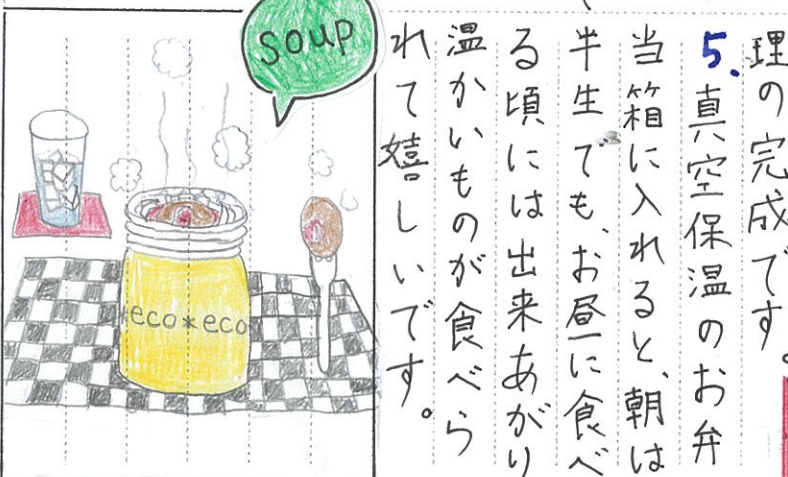 理の完成です。
5.真空保温のお弁
当箱に入れると、朝は
半生でも、お昼に食べ
る頃には出来あがり
温かいものが食べら
れて嬉しいです。
soup
eco*eco